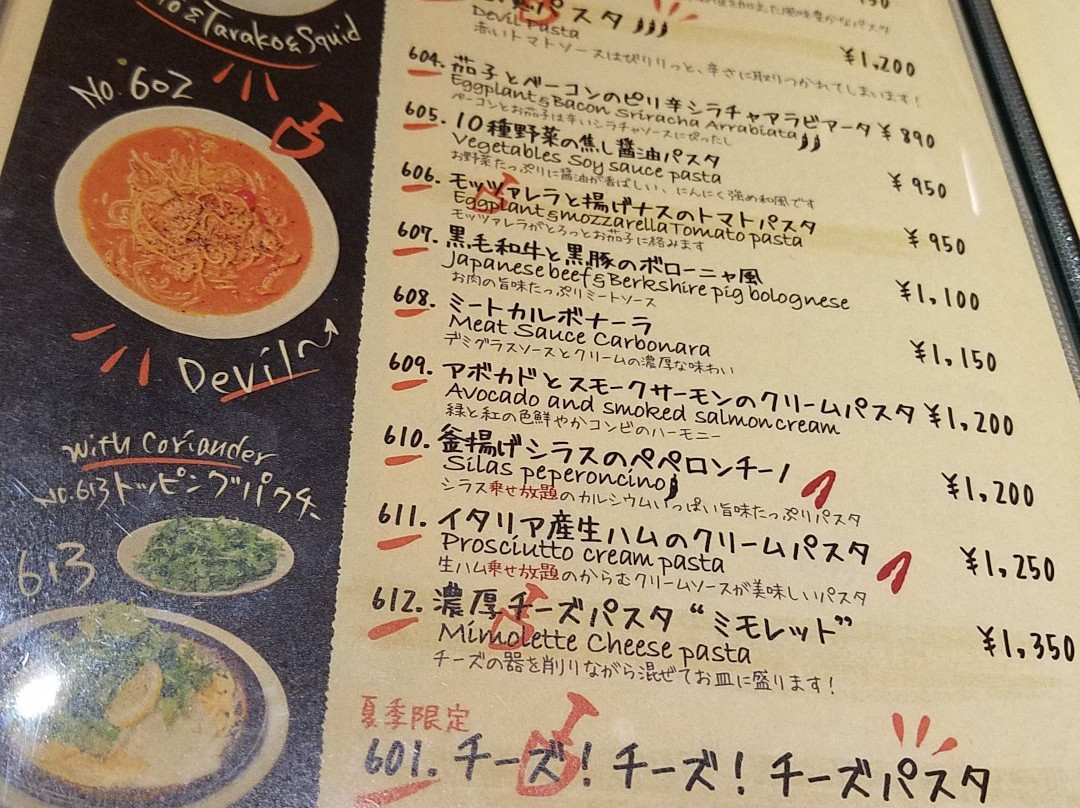 &Tarako&Squid
No.602
Devil
with coriander
No.613トッピングパクチー
613
パスタ
Devil pasta
赤いトマトソースはぴりりっと、辛さに取りつかれてしまいます!
¥1,200
604. 茄子とベーコンのピリ辛シラチャアラビアータ ¥890
Eggplant&Bacon Sriracha Arrabiata
ベーコンとお茄子は辛いシラチャソースにぴったし
605. 10種野菜の焦し醤油パスタ ¥950
Vegetables Soy sauce pasta
お野菜たっぷりに醤油が香ばしい、にんにく強め和風です
606. モッツァレラと揚げナスのトマトパスタ ¥950
Eggplant&mozzarella Tomato pasta
モッツァレラがとろっとお茄子に絡みます
607. 黒毛和牛と黒豚のボローニャ風 ¥1,100
Japanese beef&Berkshire pig bolognese
お肉の旨味たっぷりミートソース
608. ミートカルボナーラ ¥1,150
Meat Sauce Carbonara
デミグラスソースとクリームの濃厚な味わい
609. アボカドとスモークサーモンのクリームパスタ ¥1,200
Avocado and smoked salmon cream
緑と紅の色鮮やかコンビのハーモニー
610. 釜揚げシラスのペペロンチーノ ¥1,200
Silas peperoncino
シラス乗せ放題のカルシウムいっぱい旨味たっぷりパスタ
611. イタリア産生ハムのクリームパスタ ¥1,250
Prosciutto cream pasta
生ハム乗せ放題のからむクリームソースが美味しいパスタ
612. 濃厚チーズパスタ“ミモレット” ¥1,350
Mimolette Cheese pasta
チーズの器を削りながら混ぜてお皿に盛ります!
夏季限定
601. チーズ!チーズ!チーズパスタ